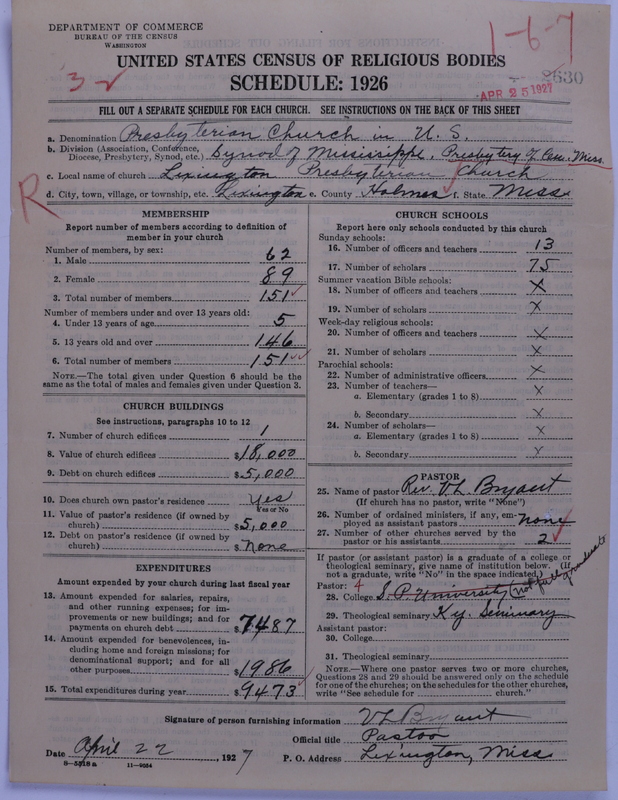 DEPARTMENT OF COMMERCE
BUREAU OF THE CENSUS
WASHINGTON
1-6-7
3
2630
APR 25 1927
UNITED STATES CENSUS OF RELIGIOUS BODIES
SCHEDULE: 1926
FILL OUT A SEPARATE SCHEDULE FOR EACH CHURCH. SEE INSTRUCTIONS ON THE BACK OF THIS SHEET
a. Denomination Presbyterian Church in U. S.
b. Division (Association, Conference, Diocese, Presbytery, Synod, etc.) Synod of Mississippi, Presbytery of Cen. Miss.
c. Local name of church Lexington Presbyterian Church
d. City, town, village, or township, etc. Lexington e. County Holmes f. State Miss
R
MEMBERSHIP
Report number of members according to definition of
member in your church
Number of members, by sex:
1. Male 62
2. Female 89
3. Total number of members 151
Number of members under and over 13 years old:
4. Under 13 years of age 5
5. 13 years old and over 146
6. Total number of members 151
NOTE.—The total given under Question 6 should be the
same as the total of males and females given under Question 3.
CHURCH BUILDINGS
See instructions, paragraphs 10 to 12
7. Number of church edifices 1
8. Value of church edifices $18,000
9. Debt on church edifices $5,000
10. Does church own pastor's residence Yes
Yes or No
11. Value of pastor's residence (if owned by
church) $5,000
12. Debt on pastor's residence (if owned by
church) $ None
EXPENDITURES
Amount expended by your church during last fiscal year
13. Amount expended for salaries, repairs,
and other running expenses; for im-
provements or new buildings; and for
payments on church debt $7487
14. Amount expended for benevolences, in-
cluding home and foreign missions; for
denominational support; and for all
other purposes $1986
15. Total expenditures during year $9473
CHURCH SCHOOLS
Report here only schools conducted by this church
Sunday schools:
16. Number of officers and teachers 13
17. Number of scholars 75
Summer vacation Bible schools:
18. Number of officers and teachers X
19. Number of scholars X
Week-day religious schools:
20. Number of officers and teachers X
21. Number of scholars X
Parochial schools:
22. Number of administrative officers X
23. Number of teachers—
a. Elementary (grades 1 to 8) X
b. Secondary X
24. Number of scholars—
a. Elementary (grades 1 to 8) X
b. Secondary X
PASTOR
25. Name of pastor Rev. VL Bryant
(If church has no pastor, write "None")
26. Number of ordained ministers, if any, em-
ployed as assistant pastors none
27. Number of other churches served by the
pastor or his assistants 2
If pastor (or assistant pastor) is a graduate of a college or
theological seminary, give name of institution below. (If
not a graduate, write "No" in the space indicated.)
Pastor: 4
28. College S. P. University (not full graduate
29. Theological seminary Ky. Seminary
Assistant pastor:
30. College
31. Theological seminary
NOTE.—Where one pastor serves two or more churches,
Questions 28 and 29 should be answered only on the schedule
for one of the churches; on the schedules for the other churches,
write "See schedule for church."
Signature of person furnishing information VL Bryant
Official title Pastor
Date April 22, 1927 P. O. Address Lexington, Miss
8—5518a 11—9054